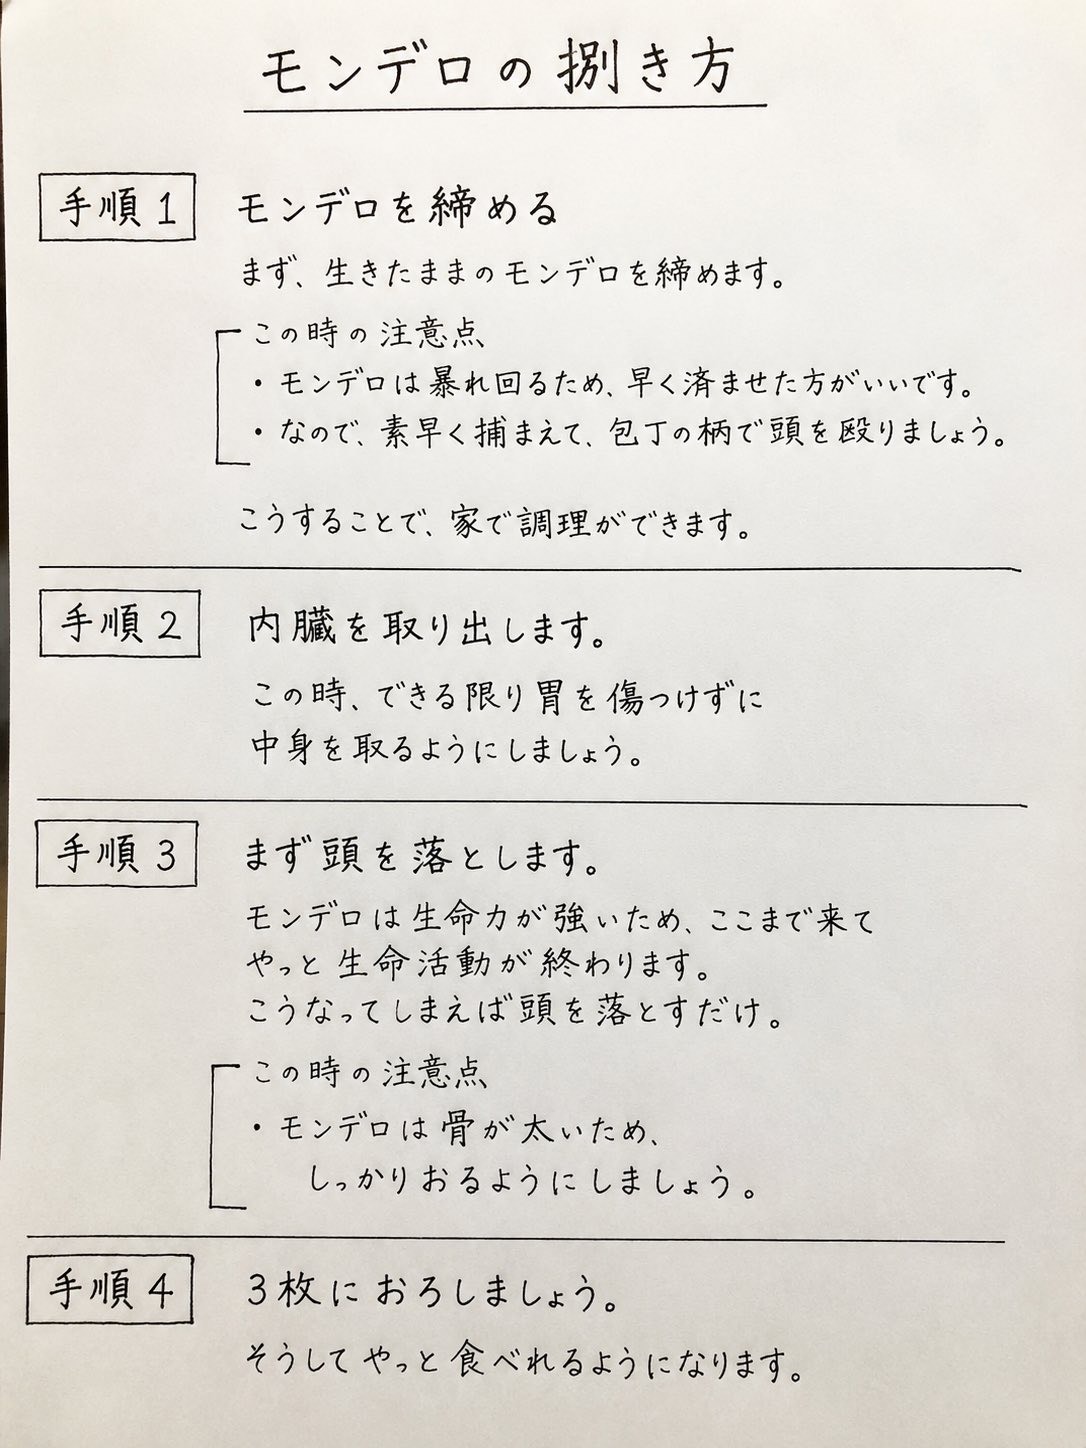 モンデロの捌き方
手順1 モンデロを締める
まず、生きたままのモンデロを締めます。
この時の注意点
・モンデロは暴れ回るため、早く済ませた方がいいです。
・なので、素早く捕まえて、包丁の柄で頭を殴りましょう。
こうすることで、家で調理ができます。
手順2 内臓を取り出します。
この時、できる限り胃を傷つけずに
中身を取るようにしましょう。
手順3 まず頭を落とします。
モンデロは生命力が強いため、ここまで来て
やっと生命活動が終わります。
こうなってしまえば頭を落とすだけ。
この時の注意点
・モンデロは骨が太いため、
しっかりおるようにしましょう。
手順4 3枚におろしましょう。
そうしてやっと食べれるようになります。